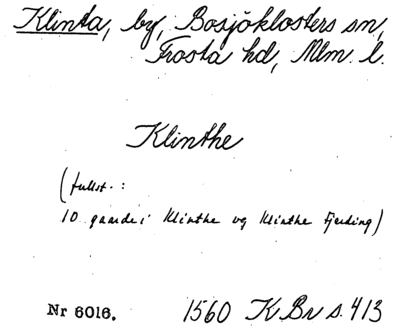 Klinta, by, Bosjöklosters sn,
Frosta hd, Mlm. l.
Klinthe
(fullst. :
10 gaarde i Klinthe og Klinthe Fjerding)
Nr 6016. 1560 K Br s. 413